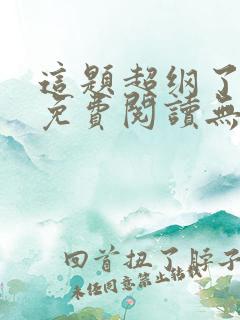 這題超纲了
免費閱讀無
回首扭了脖子
未经同意禁止转载